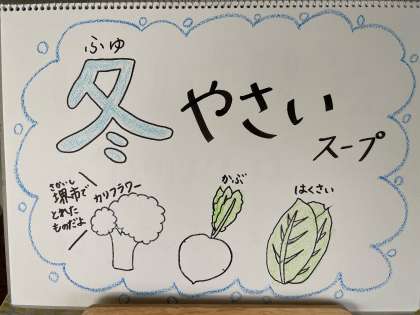 ふゆ
冬やさい
スープ
さかいし
堺市で
とれた
ものだよ
カリフラワー
かぶ
はくさい